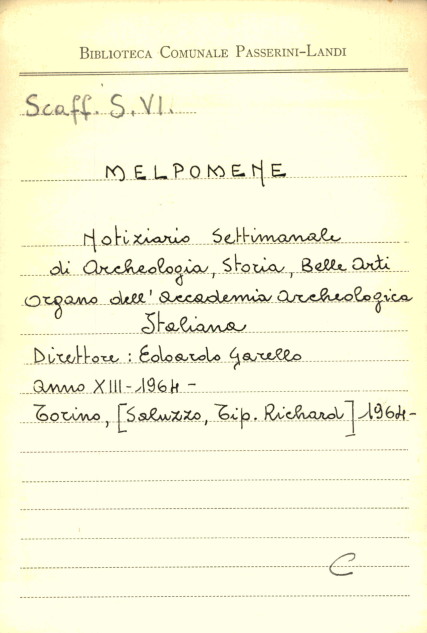 BIBLIOTECA COMUNALE PASSERINI-LANDI
Scaff. S.VI.
MELPOMENE
Notiziario Settimanale
di Archeologia, Storia, Belle Arti
Organo dell'Accademia Archeologica
Italiana
Direttore : Edoardo Garello
Anno XIII-1964-
Torino, [Saluzzo, Tip. Richard] 1964-
C